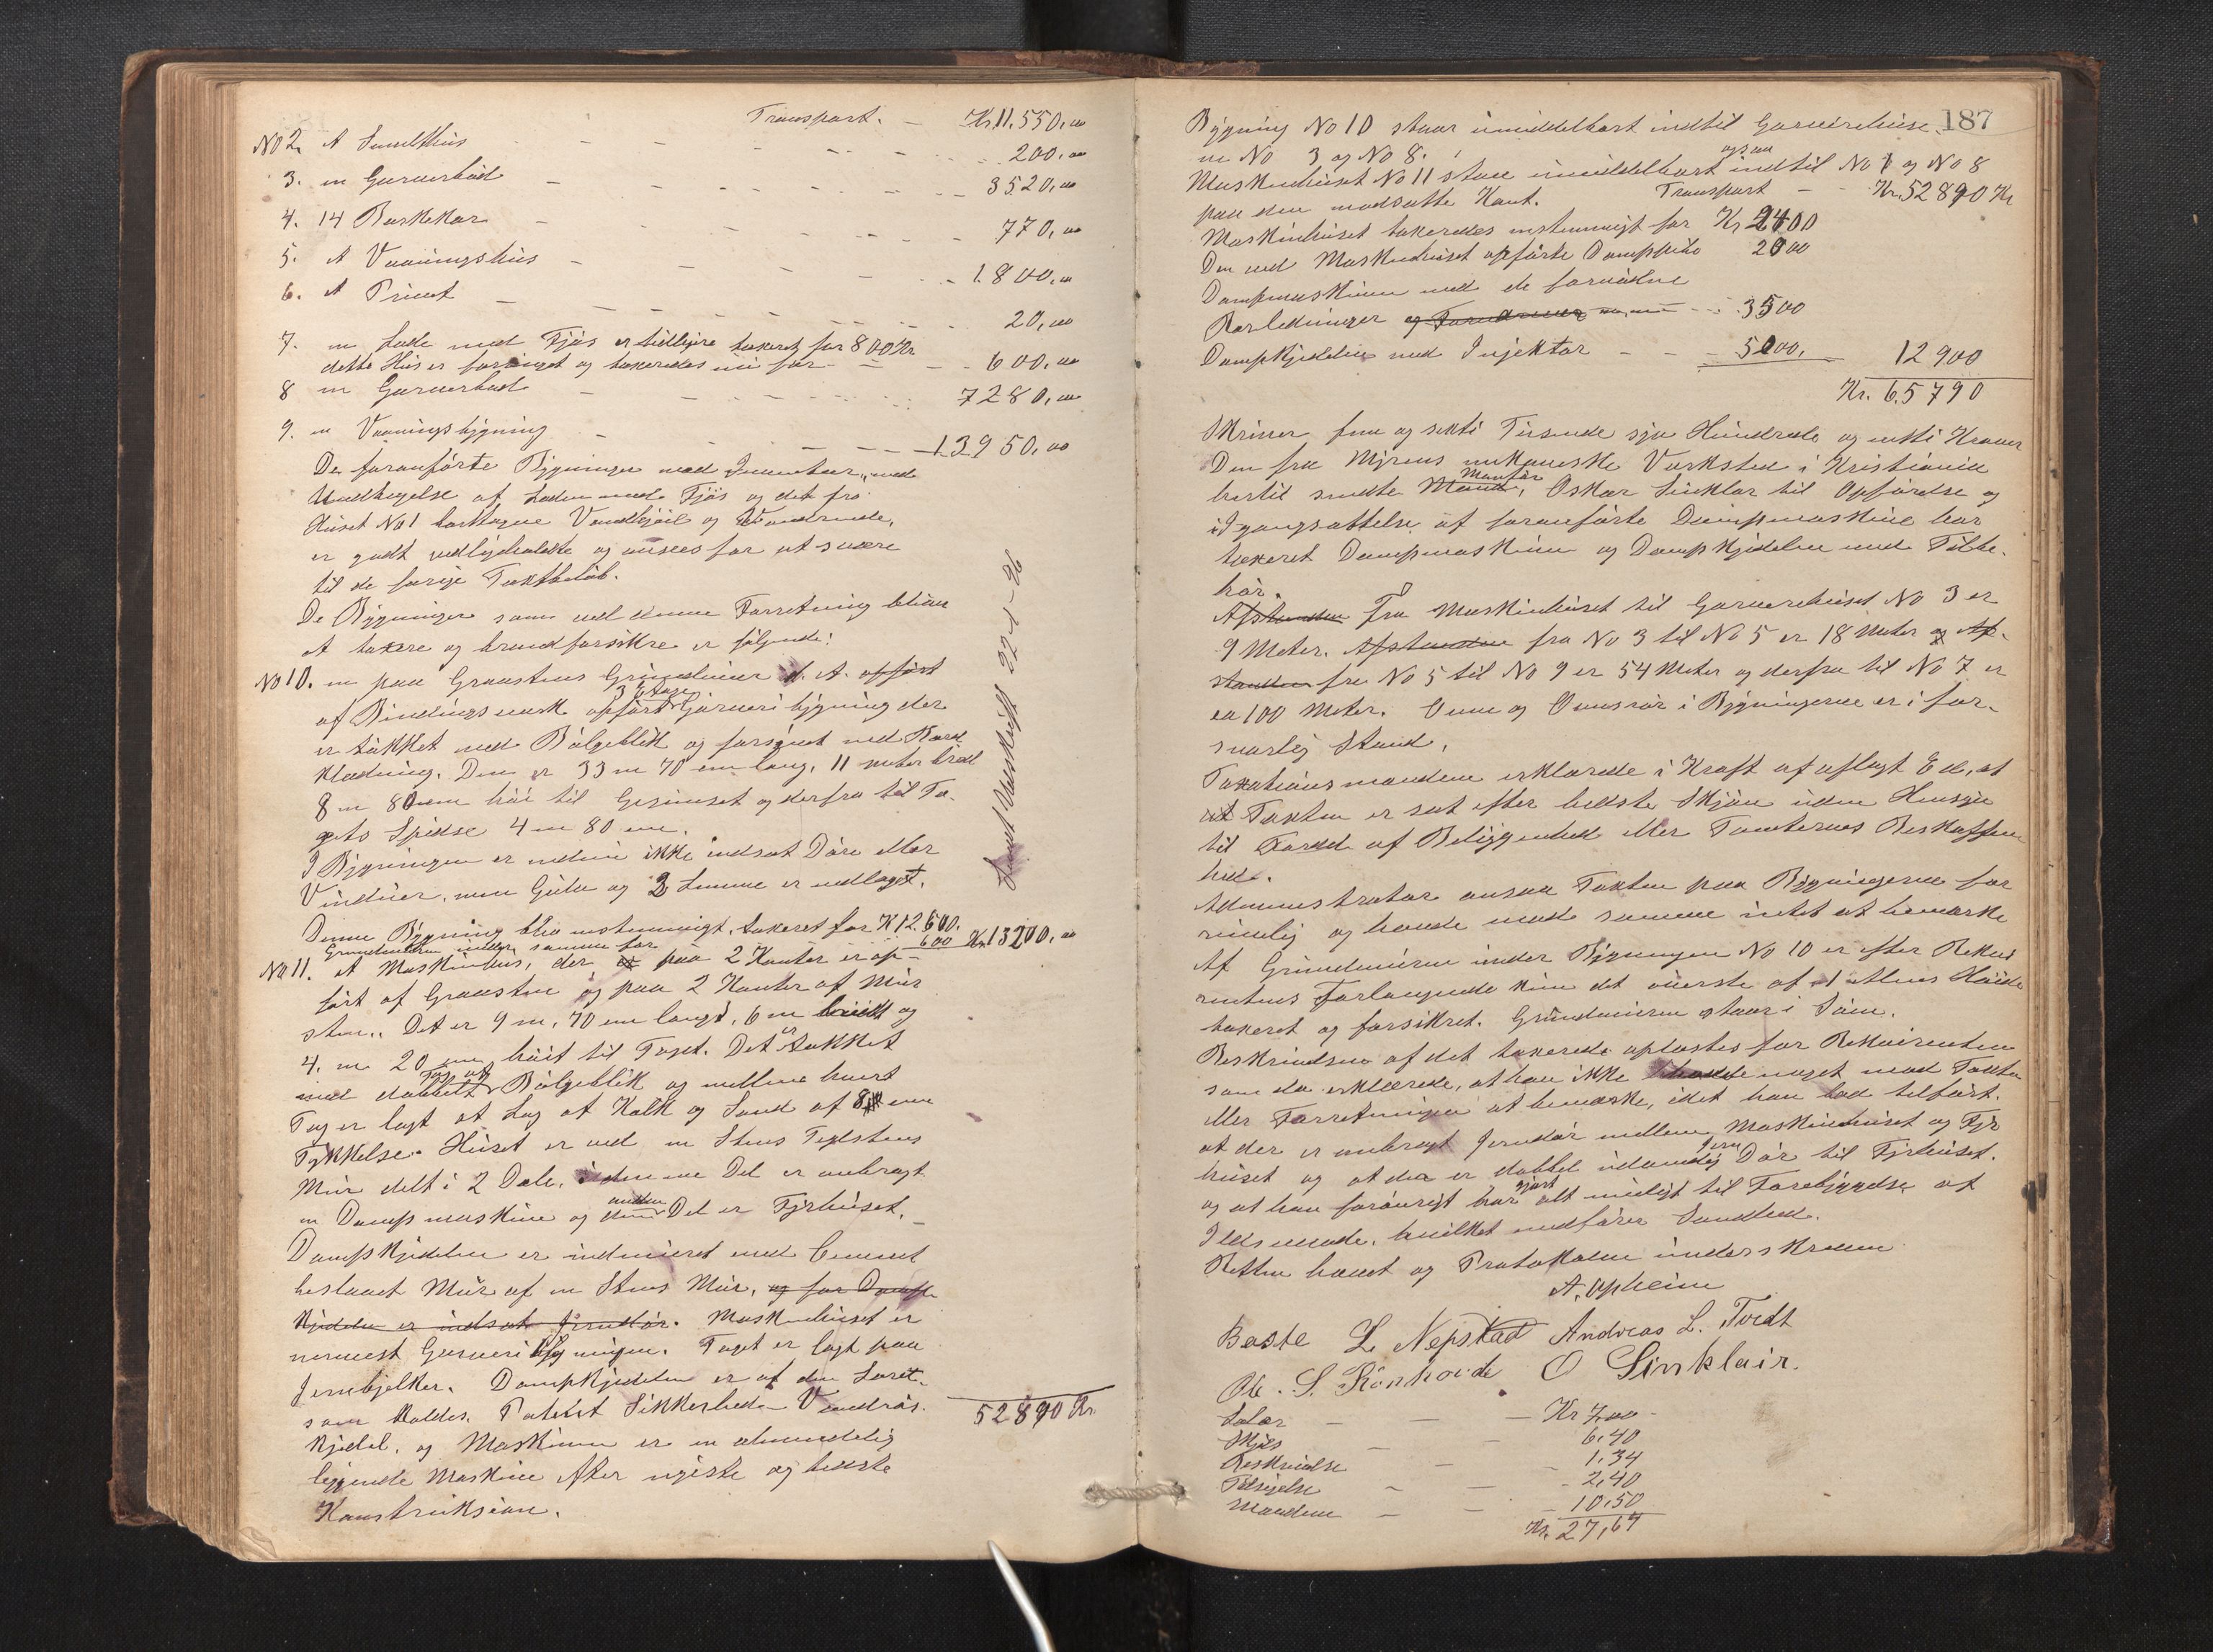 Transport. — Kr 11.550,00
No 2. et Smelthus — 200,00
3. en Garverbod — 3520,00
4. 14 Barkekar — 770,00
5. et Vaaningshus — 1800,00
6. et Privet — 20,00
7. en Lade med Fjøs er tidligere taxeret for 800 Kr
dette Hus er foringet og taxeredes nu for — 600,00
8 en Garverbod — 7280,00
9. en Vaaningsbygning — 13950,00
De foranførte Bygninger med Inventar, med
Undtagelse af Laden med Fjøs og det fra
Huset No 1 borttagne Vandhjul og Vandrende,
er godt vedligeholdte og ansees for at svare
til de forrige Taxtbeløb.
De Bygninger som ved denne Forretning bliver
at taxere og brandforsikre er følgende:
No 10. en paa Graastens Grundmur
af Bindingsverk opført 3 etages Garveribygning der
er tækket med Bølgeblik og forsynet med Bord
klædning. Den er 33 m 70 cm lang, 11 meter bred
8 m 80 cm høi til Gesimset og derfra til Ta-
gets Spidse 4 m 80 cm.
I Bygningen er endnu ikke indsat Døre eller
Vinduer, men Gulve og 2 Lemme er nedlagt.
Denne Bygning blev enstemmigt taxeret for K 12.600.
Grundmuren under samme for 600 Kr 13200,00
No 11. et Maskinhus, der paa 2 Kanter er op-
ført af Graasten og paa 2 Kanter af Mur
sten. Det er 9 m, 70 cm langt, 6 m bredt og
4. m 20 cm høit til Taget. Det er tækket
med dobbelt Tag af Bølgeblik og mellem hvert
Tag er lagt et Lag af Kalk og Sand af 8 cm
Tykkelse. Huset er ved en Stens Teglstens
Mur delt i 2 Dele, i den ene Del er anbragt
en Dampmaskine og anden Del er Fyrhuset.
Dampkjedelen er indmuret med Cement
beslaaet Mur af en Stens Mur, og for Damp
kjedelen er indsat Jerndør. Maskinhuset er
nærmest Garveribygningen. Taget er lagt paa
Jernbjelker. Dampkjedelen er af den Sort
som kaldes Patent Sikkerheds Vandrørs-
kjedel, og Maskinen er en almindelig
liggende Maskine efter nyeste og bedste
Konstruksion.
52890 Kr.
Sendt Værskrift 22-1-96
187
Bygning No 10 staar umiddelbart indtil Garverehuse
ne No 3 og No 8.
Maskinhuset No 11 staar umiddelbart ogsaa indtil No 1 og No 8
paa den modsatte Kant. Transport — Kr. 52890 Kr
Maskinhuset taxeredes enstemmigt for Kr 2400
Den ved Maskinhuset opførte Damppibe 2000
Dampmaskinen med de fornødne
Rørledninger — 3500
Dampkjedelen med Injektor — 5000, 12900
Kr. 65790
Skriver fem og sekti Tusende sju Hundrede og nitti Kroner
Den fra Myrens mekaniske Værksted i Kristiania
hertil sendte Montør, Oskar Sinklar til Opførelse og
igangsættelse af foranførte Dampmaskine har
taxeret Dampmaskinen og Dampkjedelen med Tilbe-
hør.
Afstanden Fra Maskinhuset til Garverehuset No 3 er
9 Meter. Afstanden fra No 3 til No 5 er 18 Meter og Af-
standen fra No 5 til No 9 er 54 Meter og derfra til No 7 er
ca 100 Meter. Ovne og Ovnsrør i Bygningerne er i for-
svarlig Stand.
Taxationsmændene erklærede i Kraft af aflagt Ed, at
Taxten er sat efter bedste Skjøn uden Hensyn
til Fordel af Beliggenhed eller Tomternes Beskaffen
hed.
Administrator ansaa Taxten paa Bygningerne for
rimelig og havde mod samme intet at bemærke
Af Grundmuren under Bygningen No 10 er efter Rekvi
rentens Forlangende kun det øverste af 1 Alens Høide
taxeret og forsikret. Grundmuren staar i Søen.
Beskrivelsen af det taxerede oplæstes for Rekvirenten
som da erklærede, at han ikke havde noget mod Taxten
eller Forretningen at bemærke, idet han bad tilført.
at der er anbragt Jerndør mellem Maskinhuset og Fyr
huset og at der er dobbel udvendig Jern Dør til Fyrhuset.
og at han forøvrigt har gjort alt muligt til Forebyggelse af
Ildsvaade, hvilket medfører Sandhed.
Retten hævet og Protokollen underskreven
A. Opheim
Baste L. Nepstad Andreas L. Tvedt
Ole. S. Rønhovde O Sinklair.
Salær — Kr 7,00
Skyds — 6,40
Beskrivelse — 1,34
Tilsigelse — 2,40
Mændene — 10,50
Kr. 27,64